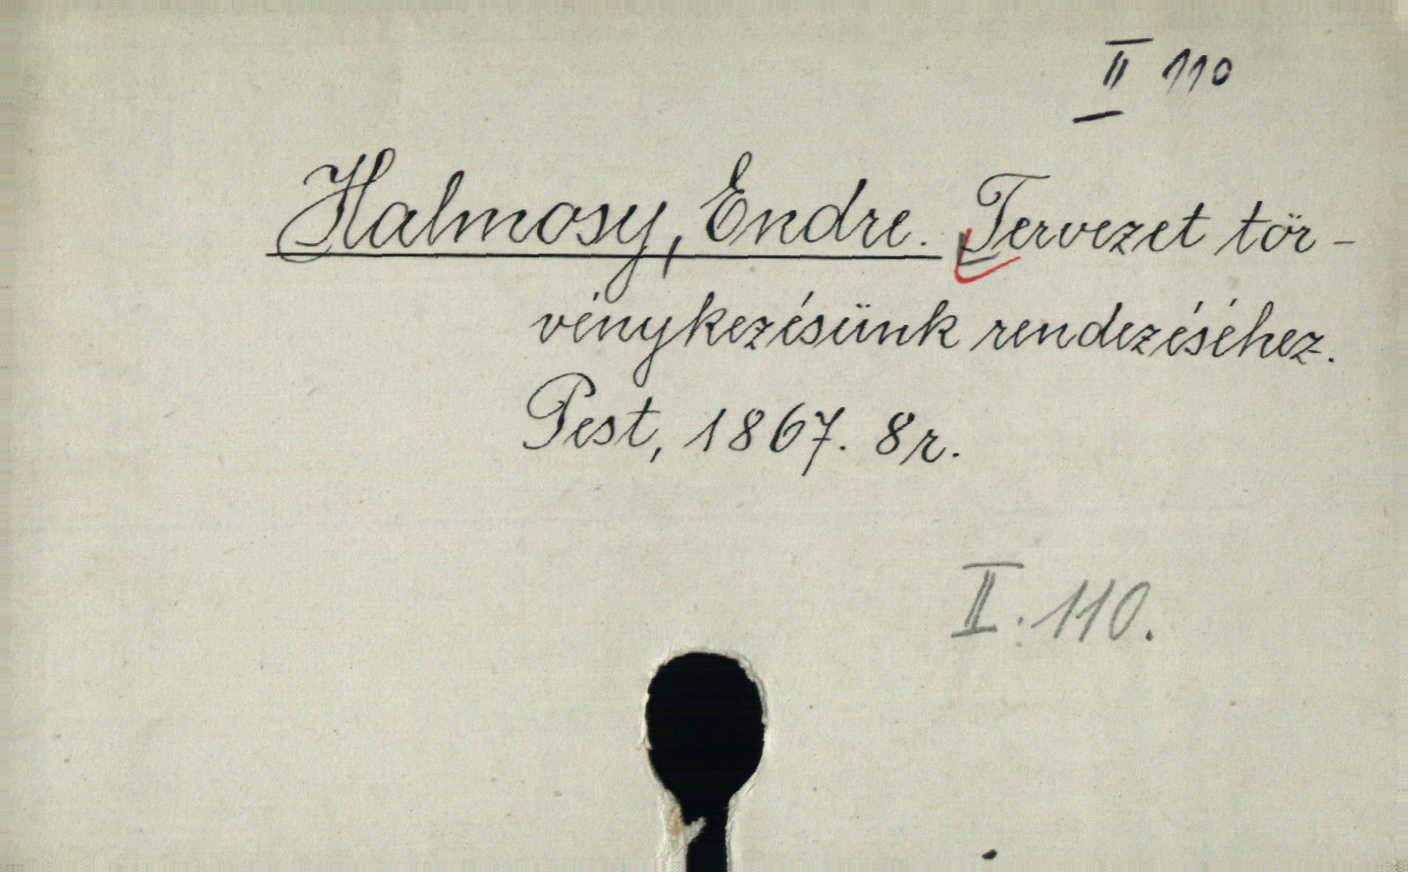 II 110
Halmosy, Endre. Tervezet tör-
vénykezésünk rendezéséhez.
Pest, 1867. 8r.
II. 110.